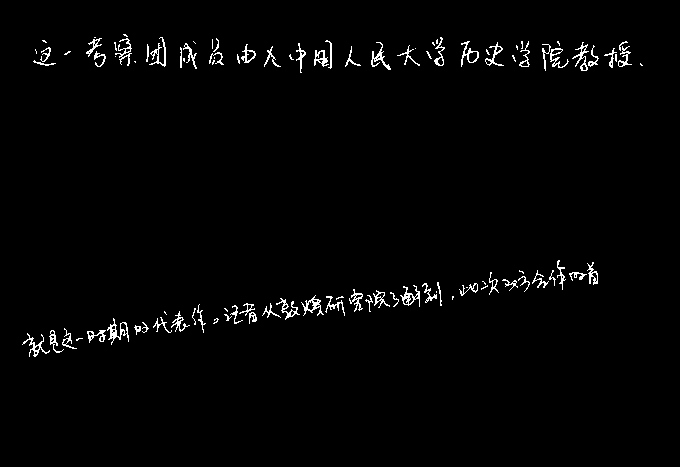 这一考察团成员由人中国人民大学历史学院教授、
就是这一时期的代表作。记者从敦煌研究院了解到，此次双方合作的首